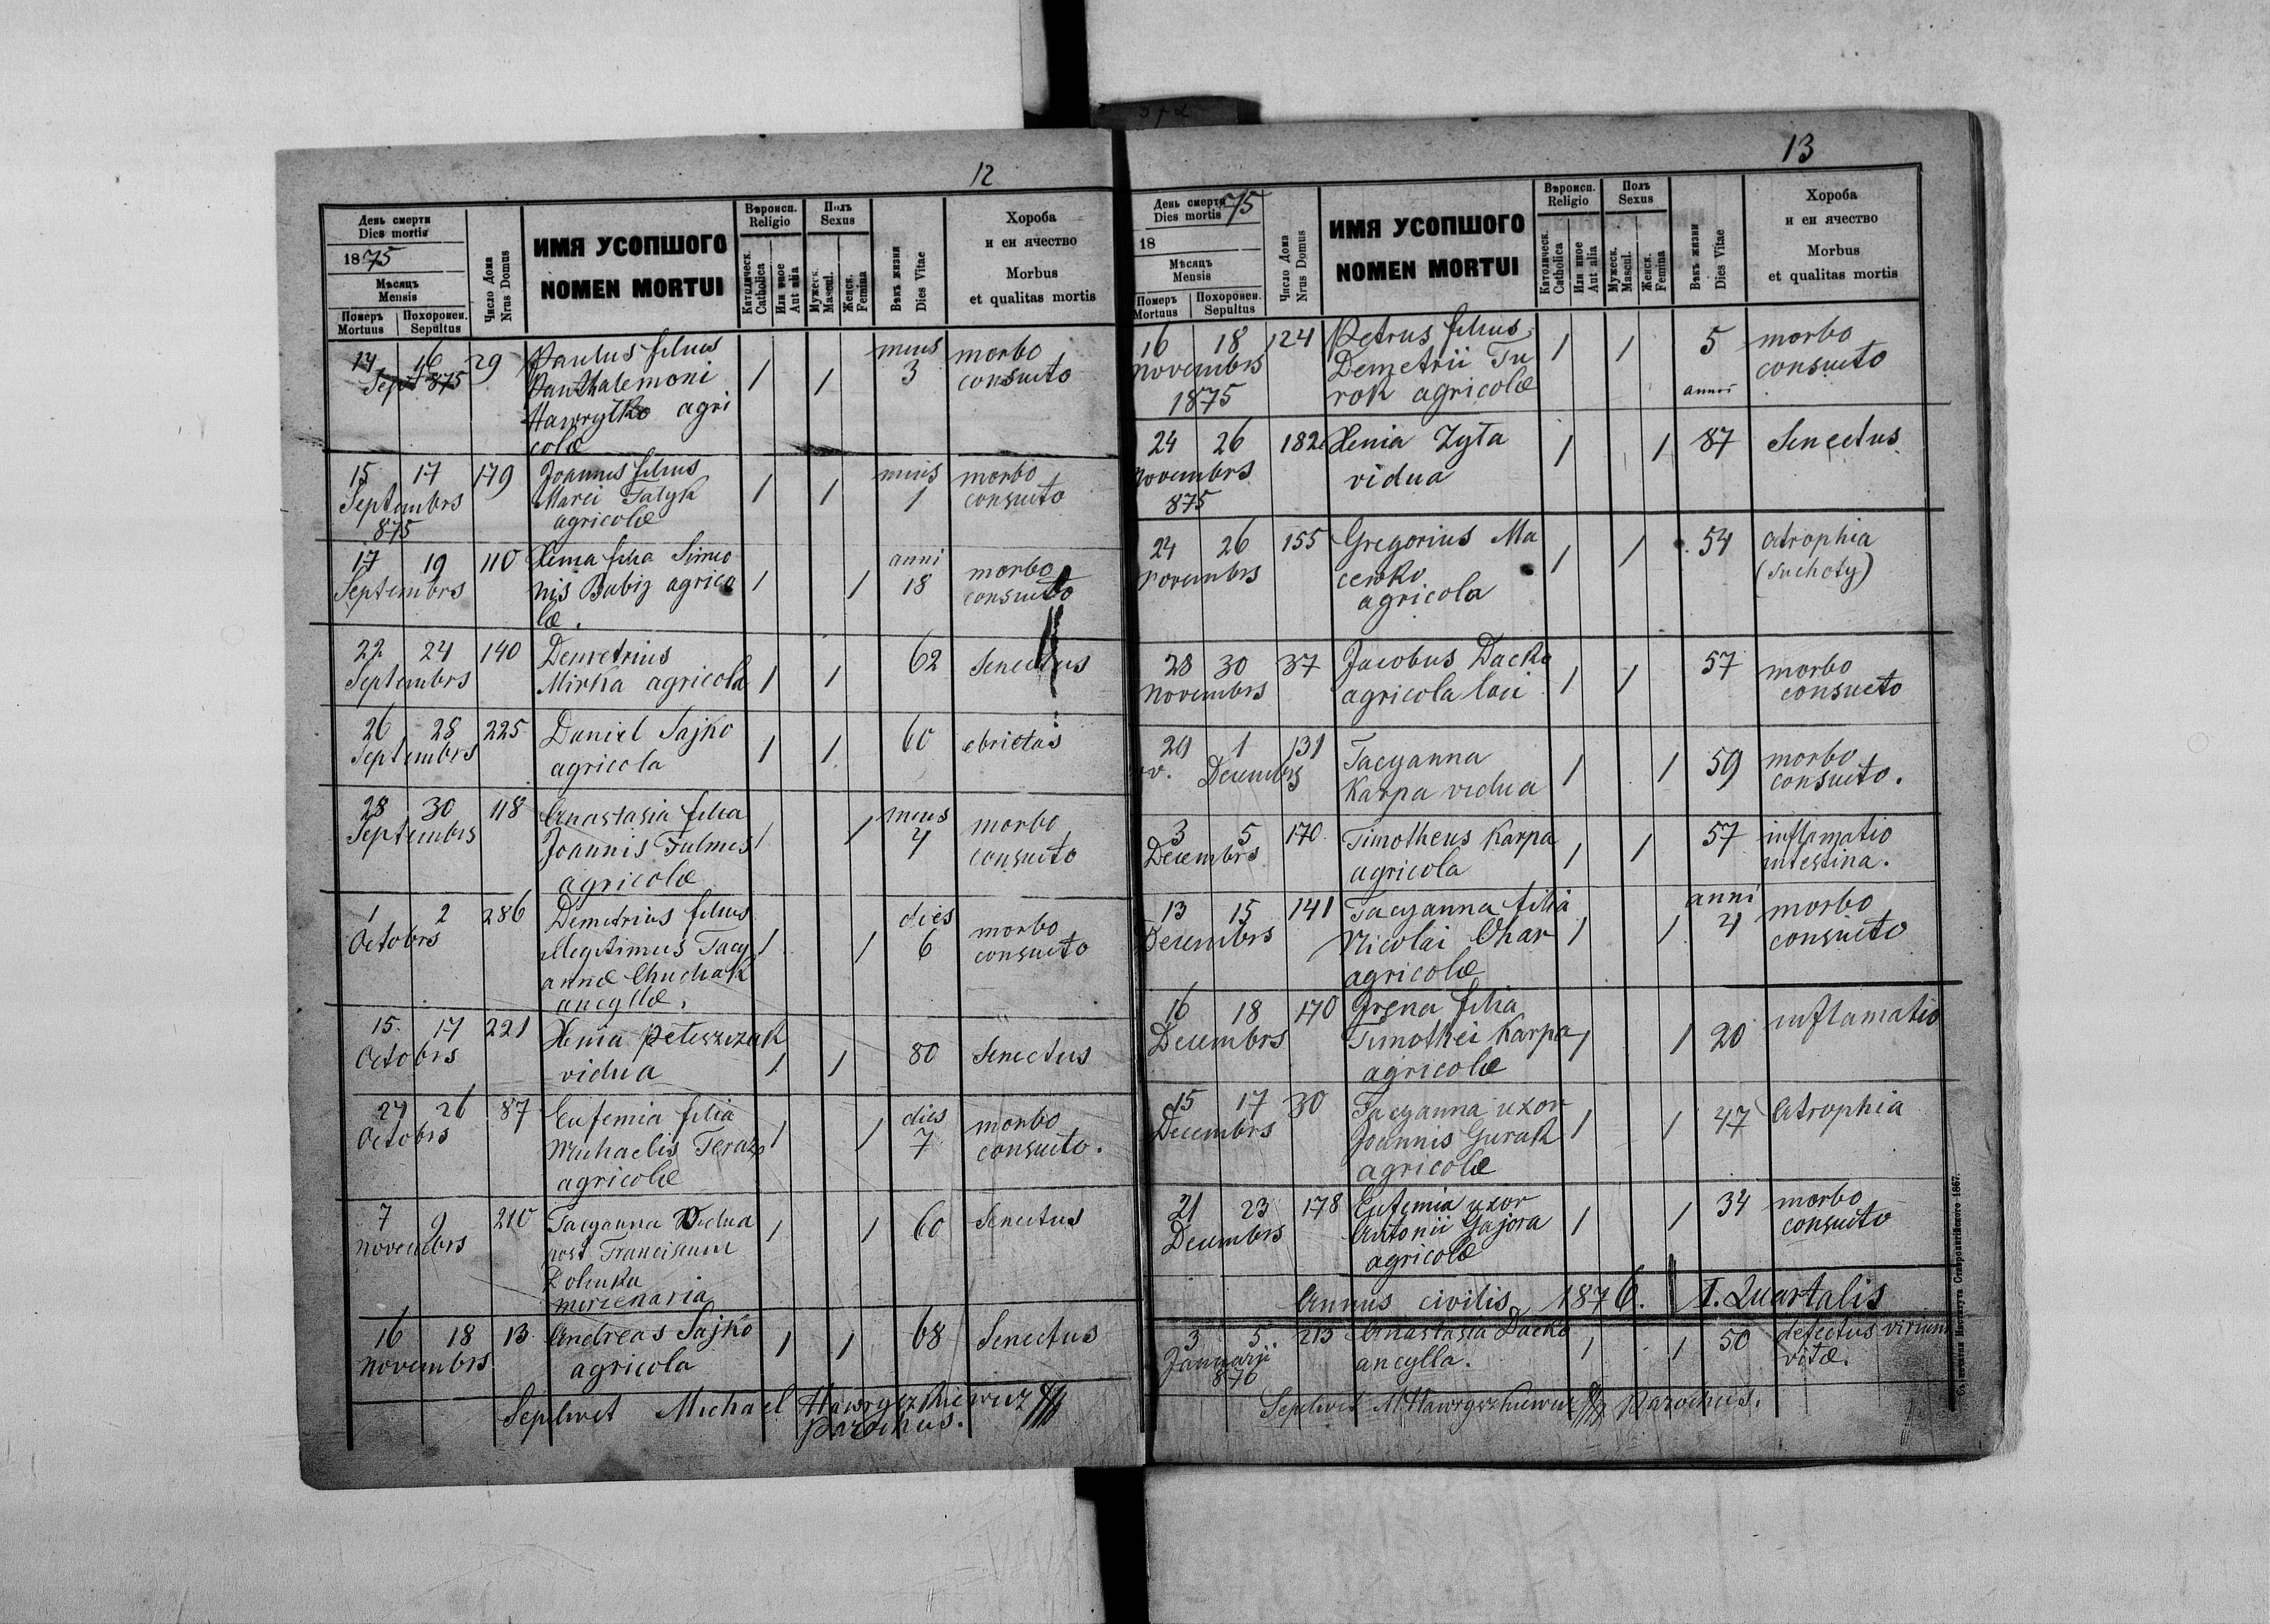 12
День смерти
Dies mortis
1875
Мѣсяць
Mensis
Померъ
Mortuus
Похоронен.
Sepultus
Число Дома
Nrus Domus
ИМЯ УСОПШОГО
NOMEN MORTUI
Вѣроисп.
Religio
Католическ.
Catholica
Или иное
Aut alia
Полъ
Sexus
Мужеск.
Mascul.
Женск.
Femina
Вѣкъ жизни
Dies Vitae
Хороба
и еи ячество
Morbus
et qualitas mortis
14 16 29 Paulus filius mens morbo
Sept 875 Panthalemoni 1 1 3 consueto
Hawrylko agri
colæ
15 17 179 Joannes filius mens morbo
Septembrs Marci Fatyk 1 1 1 consueto
875 agricolæ
17 19 110 Xenia filia Simeo anni morbo
Septembrs nis Babij agrico 1 1 18 consueto
læ.
22 24 140 Demetrius 62 Senectus
Septembrs Mirka agricola 1 1
26 28 225 Daniel Sajko 60 ebrietas
Septembrs agricola 1 1
28 30 118 Anastasia filia mens morbo
Septembrs Joannis Fulmes 1 1 4 consueto
agricolæ
1 2 286 Demetrius filius dies morbo
Octobrs illegitimus Tacy 1 1 6 consueto
annæ Chuchak
ancyllæ.
15 17 221 Xenia Peteszczak 80 Senectus
Octobrs vidua 1 1
24 26 87 Eufemia filia dies morbo
Octobrs Michaelis Teraz 1 1 7 consueto.
agricolæ
7 9 210 Tacyanna Vidua 1 1 60 Senectus
Novembrs post Franciscum
mercenaria
16 18 13 Andreas Sajko 1 1 68 Senectus
Novembrs agricola
Sepelivit Michael Hawryszkiewicz
Parochus.
13
День смерти
Dies mortis 75
18
Мѣсяць
Mensis
Померъ
Mortuus
Похоронен.
Sepultus
Число Дома
Nrus Domus
ИМЯ УСОПШОГО
NOMEN MORTUI
Вѣроисп.
Religio
Католическ.
Catholica
Или иное
Aut alia
Полъ
Sexus
Мужеск.
Mascul.
Женск.
Femina
Вѣкъ жизни
Dies Vitae
Хороба
и еи ячество
Morbus
et qualitas mortis
16 18 124 Petrus filius 1 1 5 morbo
Novembrs Demetrii Tu consueto
1875 rok agricolæ anni
24 26 182 Xenia Zyta 1 1 87 Senectus
Novembrs vidua
875
24 26 155 Gregorius Ma 1 1 54 atrophia
Novembrs cewko (Suchoty)
agricola
28 30 37 Jacobus Dacko 57 morbo
Novembrs agricola laci 1 1 consueto
29 1 131 Tacyanna 1 1 59 morbo
ov. Decembrs Karpa vidua consueto.
3 5 170 Timotheus Karpa 1 1 57 inflamatio
Decembrs agricola intestina.
13 15 141 Tacyanna filia anni morbo
Decembrs Nicolai Char 1 1 4 consueto
agricolæ
16 18 170 Irena filia inflamatio
Decembrs Timothei Karpa 1 1 20
agricolæ
15 17 30 Tacyanna uxor 1 1 47 Atrophia
Decembrs Joannis Gurak
agricolæ
21 23 178 Eufemia uxor 1 1 34 morbo
Decembrs Antonii Gajora consueto
agricolæ
Annus civilis 1876. I. Quartalis
3 5 213 Anastasia Dacko 1 1 50 defectus virium
Januarii ancylla. vitæ.
876
Sepelivit MHawryszkiewicz Parochus.
Ставропигійского 1867.